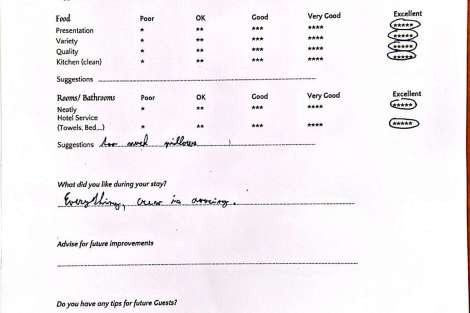 Food Poor OK Good Very Good Excellent
Presentation * ** *** **** *****
Variety * ** *** **** *****
Quality * ** *** **** *****
Kitchen (clean) * ** *** **** *****
Suggestions
Rooms/ Bathrooms Poor OK Good Very Good Excellent
Neatly * ** *** **** *****
Hotel Service
(Towels, Bed,..) * ** *** **** *****
Suggestions too much pillows !
What did you like during your stay?
Everything, crew is amazing.
Advise for future improvements
Do you have any tips for future Guests?